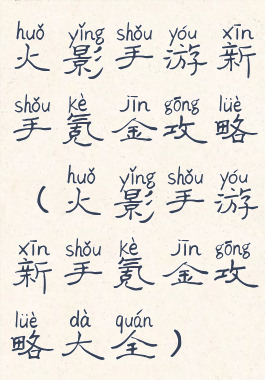 huǒ yǐng shǒu yóu xīn
火影手游新
shǒu kè jīn gōng lüè
手氪金攻略
huǒ yǐng shǒu yóu
（火影手游
xīn shǒu kè jīn gōng
新手氪金攻
lüè dà quán
略大全）